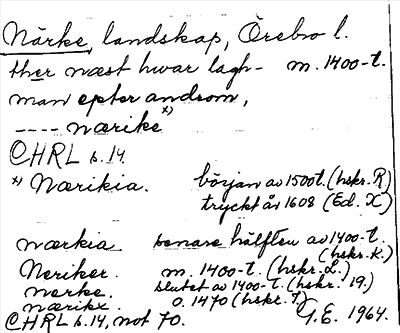 Närke, landskap, Örebro l.
ther næst hwar lagh- m. 1400-t.
man epter androm,
---- nærike x)
CHRL s. 14.
x) Nærikia. början av 1500t. (hskr. R)
tryckt år 1608 (Ed. X)
nærkia senare hälften av 1400-t. (hskr. K.)
Neriker. m. 1400-t. (hskr. L.)
nerke. slutet av 1400-t. (hskr. 19.)
nærikæ o. 1470 (hskr. T.)
CHRL s. 14, not 70. G.E. 1964.